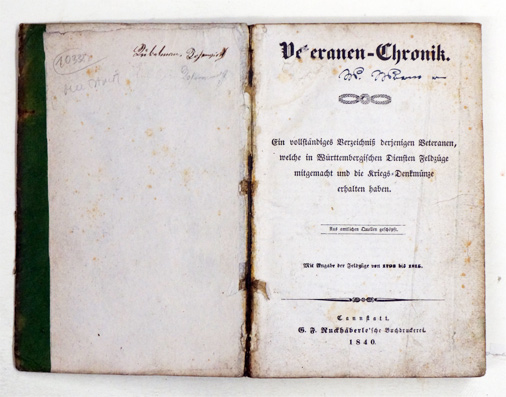 Veteranen-Chronik.
Ein vollständiges Verzeichniß derjenigen Veteranen,
welche in Württembergischen Diensten Feldzüge
mitgemacht und die Kriegs-Denkmünze
erhalten haben.
Aus amtlichen Quellen geschöpft.
Mit Angabe der Feldzüge von bis
Cannstatt.
G. F. Ruckhäberle'sche Buchdruckerei.
1840.